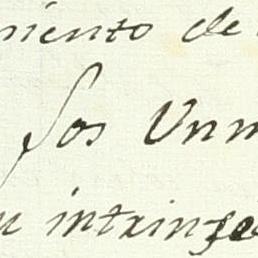 miento de
los Unm
intrinse